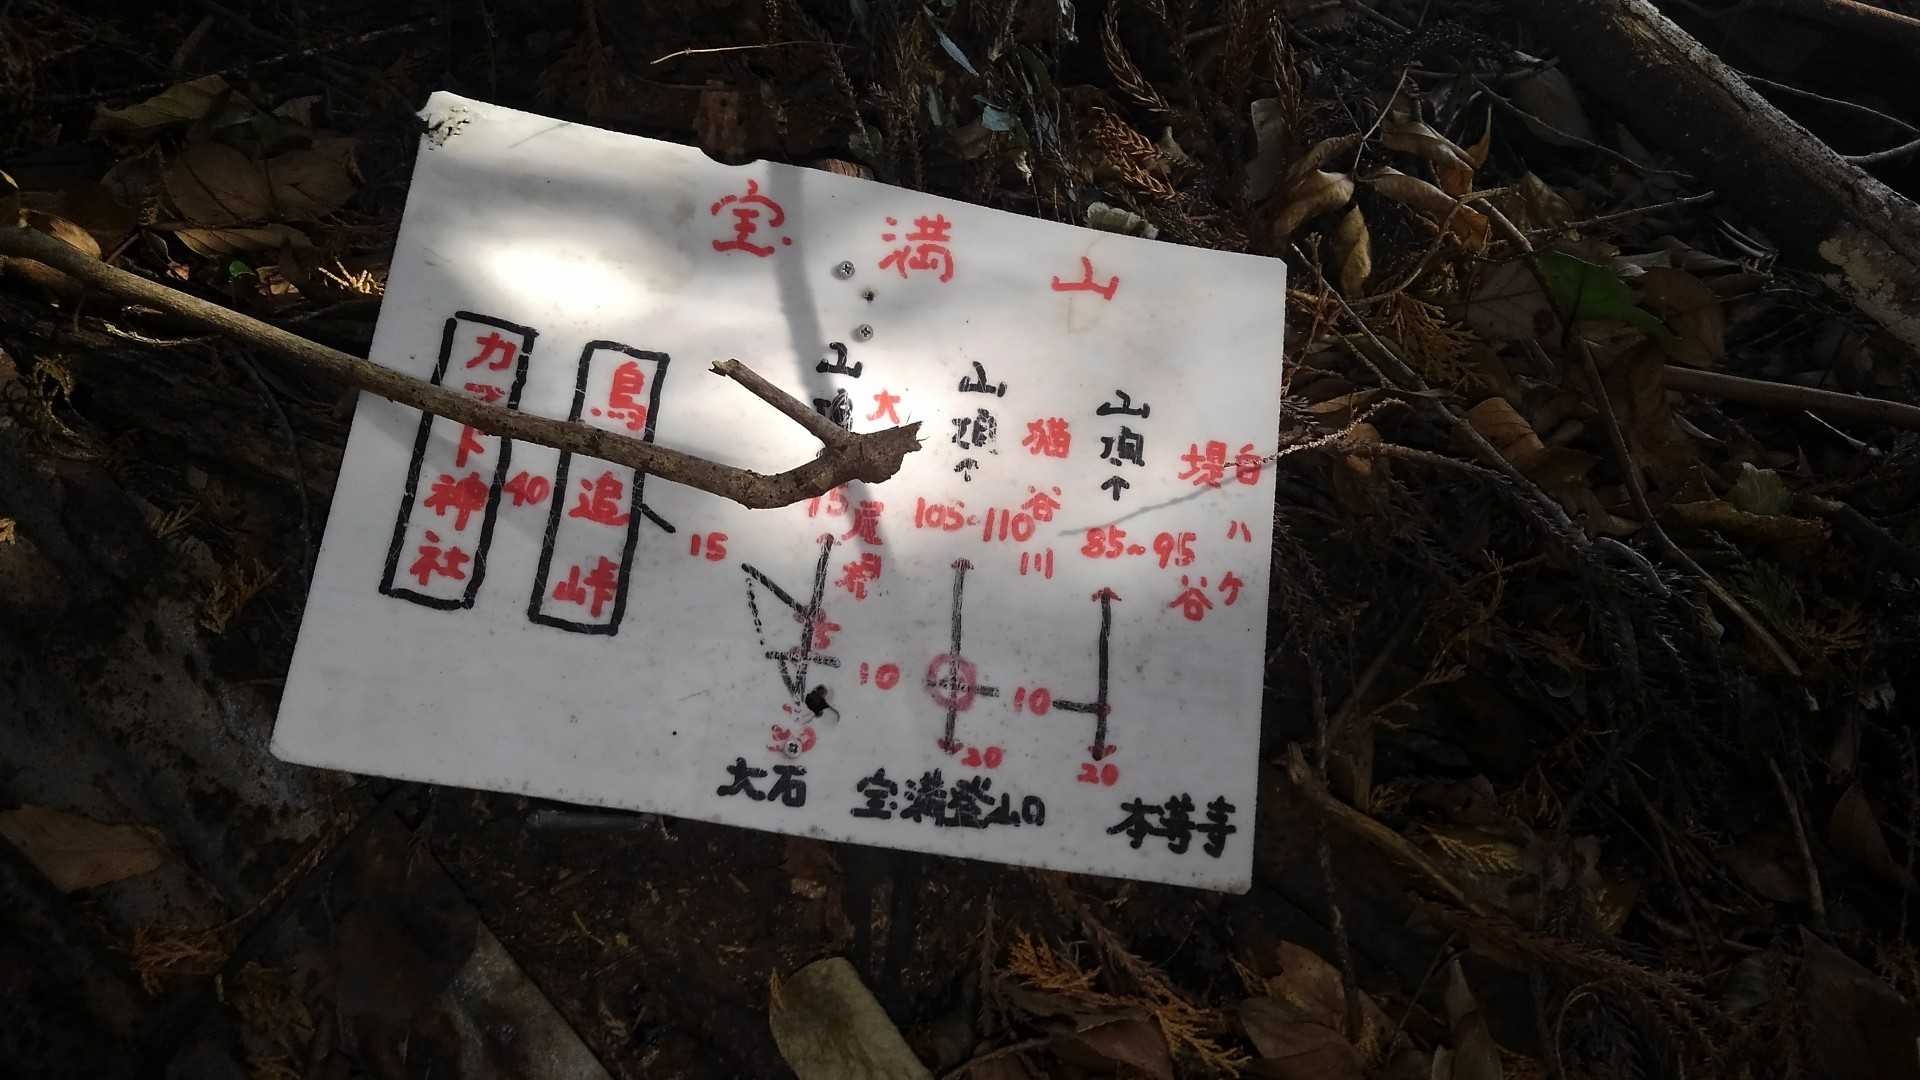 宝満山
カマド神社
40
鳥追峠
15
山頂
大尾根
15
5
10
20
大石
山頂
猫谷川
105~110
20
宝満登山口
山頂
堤谷
85~95
10
20
本導寺